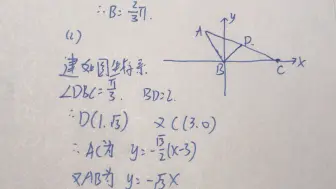 ∴B=2/3π.
(2)
建如图坐标系.
∠DBC=π/3. BD=2.
∴D(1,√3) 又C(3,0)
∴AC为 y=-√3/2(x-3)
又AB为 y=-√3x
y
A
D.
B
C
x